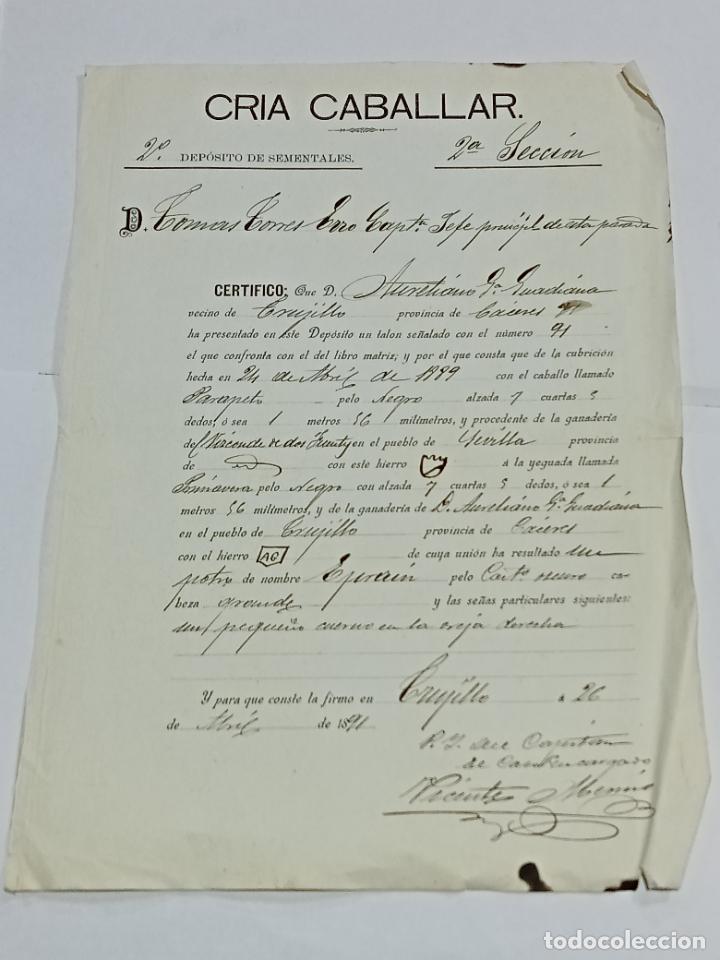 CRIA CABALLAR.
2º DEPÓSITO DE SEMENTALES. 2ª Sección
D. Tomas Torres Erro Captn. Jefe princpl de esta parada
CERTIFICO: Que D. Aureliano Gª. Guadiana
vecino de Trujillo provincia de Cáceres 91
ha presentado en este Depósito un talon señalado con el número 91
el que confronta con el del libro matriz; y por el que consta que de la cubrición
hecha en 24 de Abril de 1889 con el caballo llamado
Parapeto pelo Negro alzada 7 cuartas 5
dedos, ó sea 1 metros 56 milímetros, y procedente de la ganadería
del Vizconde de dos Fuentes en el pueblo de Sevilla provincia
de id con este hierro á la yeguada llamada
Primavera pelo Negro con alzada 7 cuartas 5 dedos, ó sea 1
metros 56 milímetros, y de la ganadería de D. Aureliano Gª. Guadiana
en el pueblo de Trujillo provincia de Cáceres
con el hierro AG de cuya unión ha resultado un
potro de nombre Eprain pelo Castº. oscuro ca-
beza grande y las señas particulares siguientes:
un pequeño cuerno en la oreja derecha
Y para que conste la firmo en Trujillo á 26
de Abril de 1891
P. I. del Capitan
Encargado
Vicente
todocoleccion
todocoleccion.net